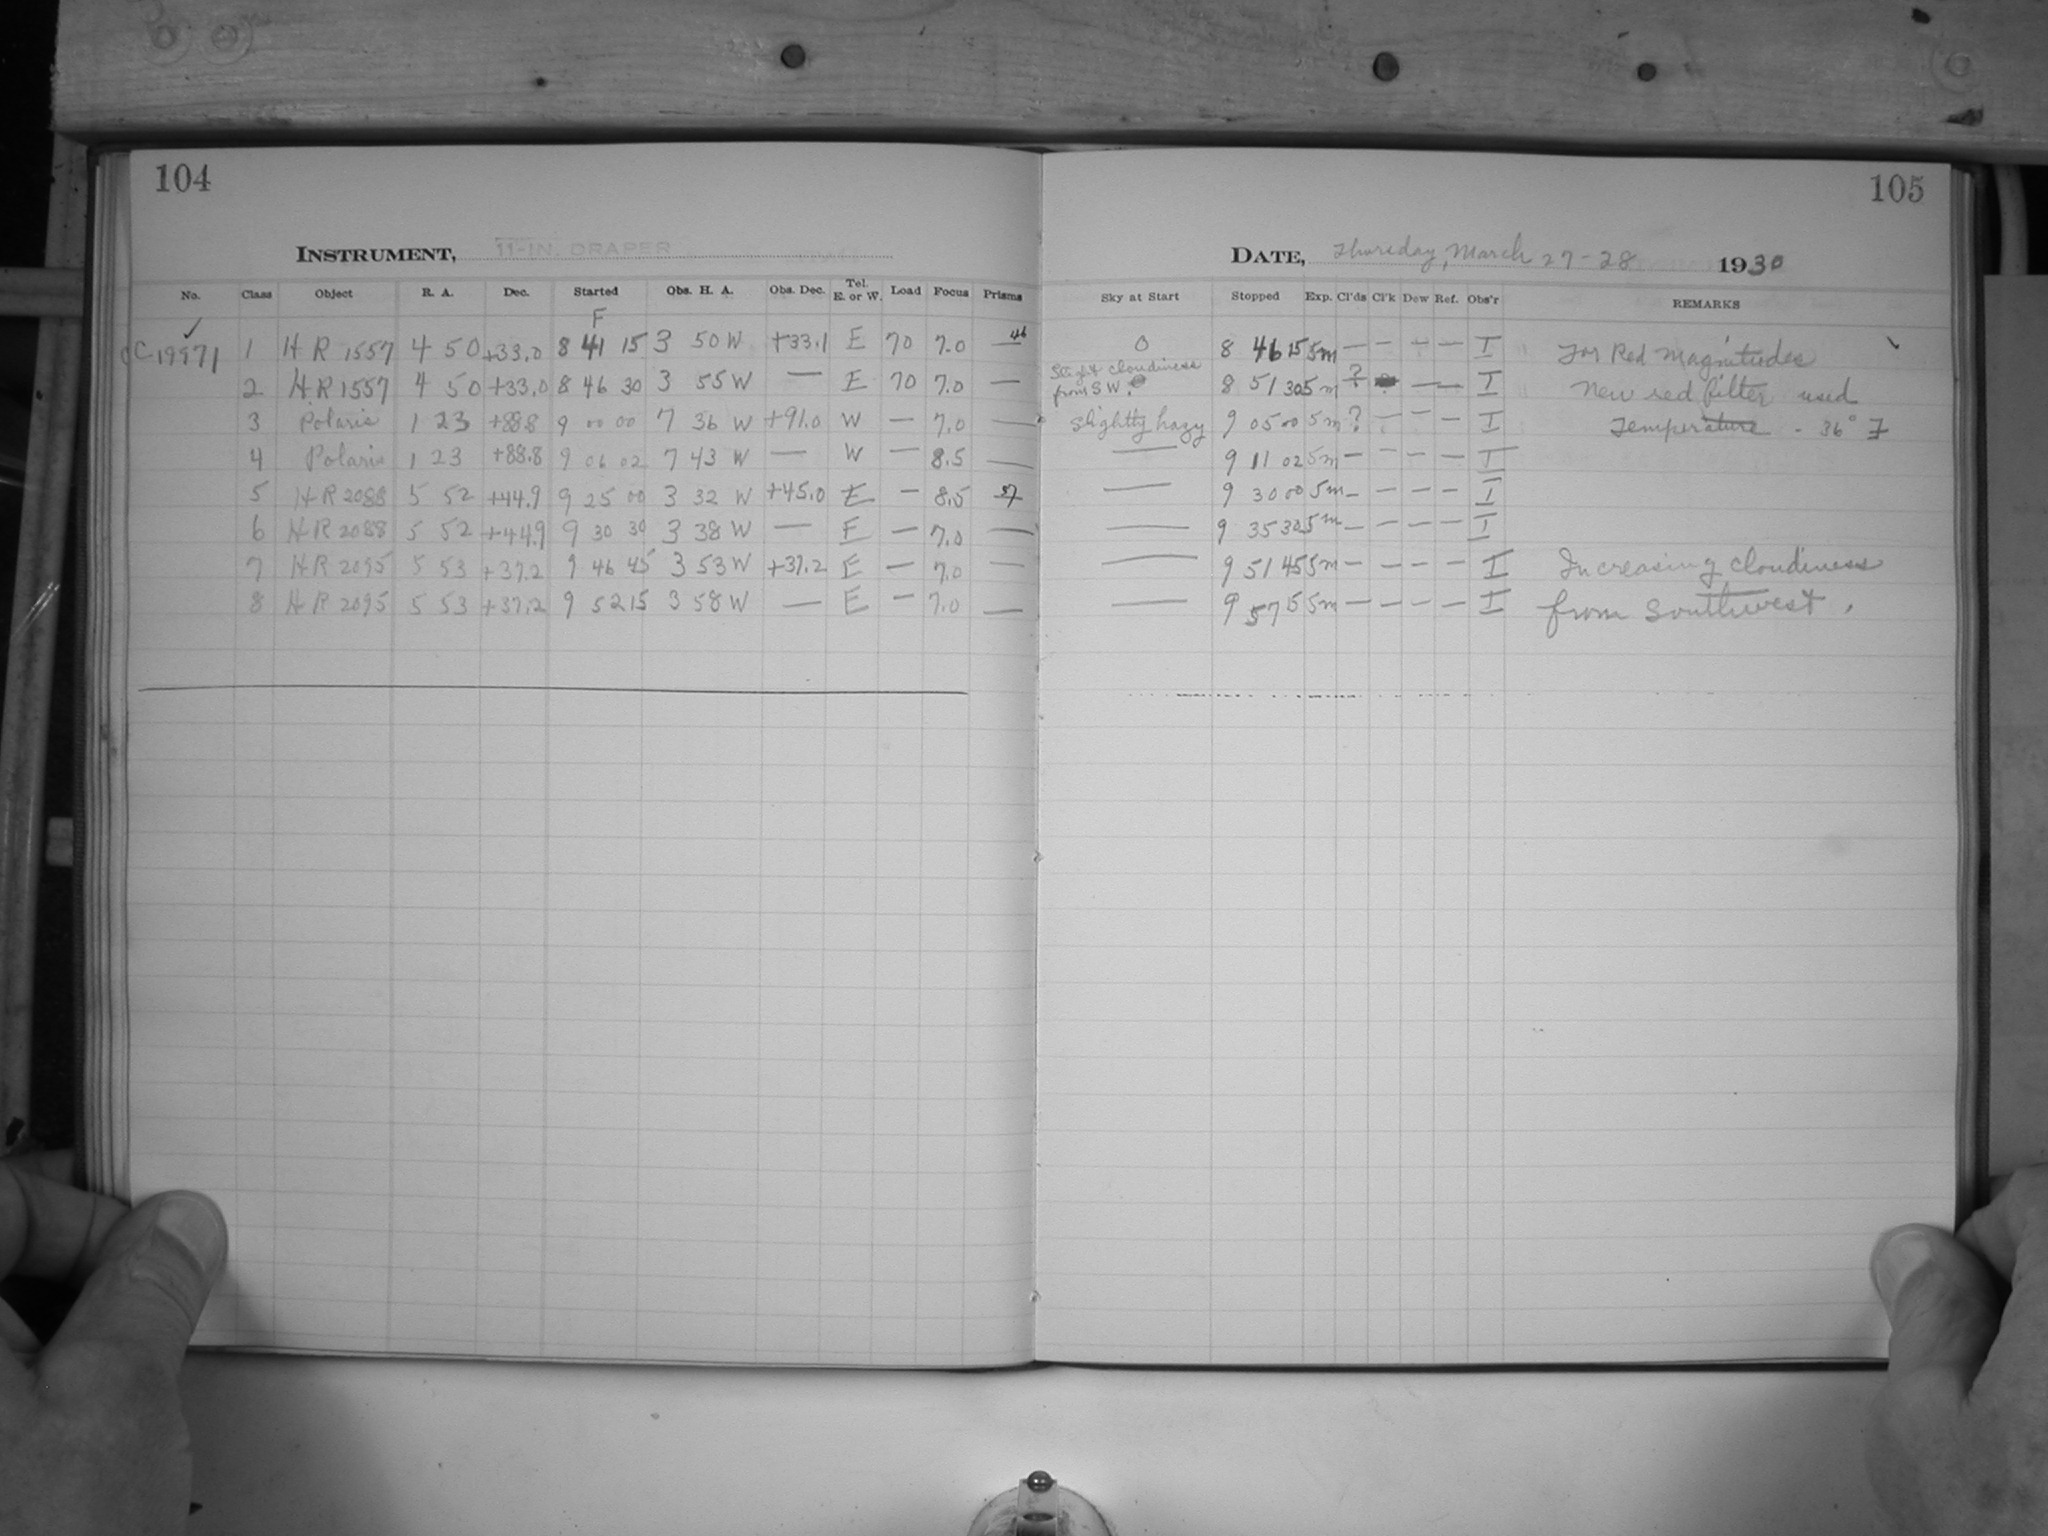 104
INSTRUMENT, 11-IN. DRAPER
No. Class Object R. A. Dec. Started Obs. H. A. Obs. Dec. Tel. E. or W. Load Focus Prisms
F
✓ 46
C 19971 1 HR 1557 4 50 +33.0 8 41 15 3 50 W +33.1 E 70 7.0 —
2 HR 1557 4 50 +33.0 8 46 30 3 55 W — E 70 7.0 —
3 Polaris 1 23 +88.8 9 00 00 7 36 W +91.0 W — 7.0 —
4 Polaris 1 23 +88.8 9 06 02 7 43 W — W — 8.5 —
5 HR 2088 5 52 +44.9 9 25 00 3 32 W +45.0 E — 8.5
6 HR 2088 5 52 +44.9 9 30 30 3 38 W — E — 7.0 —
7 HR 2095 5 53 +37.2 9 46 45 3 53 W +37.2 E — 7.0 —
8 HR 2095 5 53 +37.2 9 52 15 3 58 W — E — 7.0 —
105
DATE, Thursday, March 27-28 1930
Sky at Start Stopped Exp. Cl'ds Cl'k Dew Ref. Obs'r REMARKS
0 8 46 15 5m — — — — I For Red Magnitudes ✓
Slight cloudiness
from SW. 8 51 30 5m ? — — I New red filter used
Slightly hazy 9 05 00 5m ? — — — I Temperature - 36° F
— 9 11 02 5m — — — — I
— 9 30 00 5m — — — — I
— 9 35 30 5m — — — — I
— 9 51 45 5m — — — — I Increasing cloudiness
— 9 57 15 5m — — — — I from Southwest.